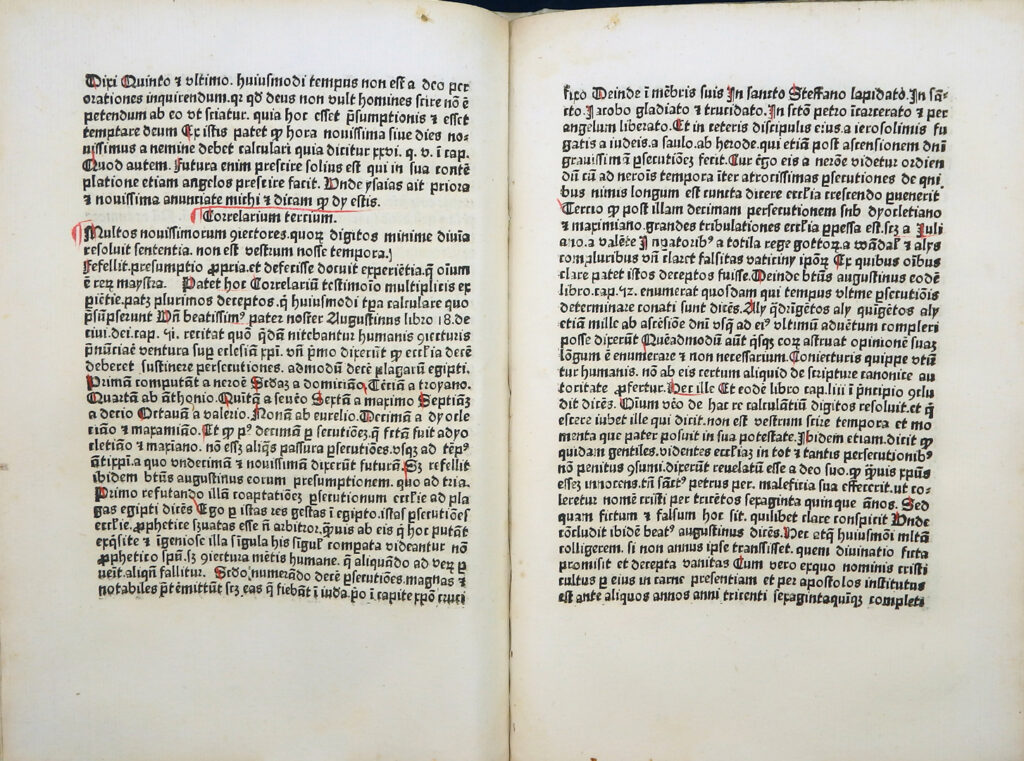 Dixi Quinto ⁊ vltimo. huiusmodi tempus non est a deo per
orationes inquirendum. qr qd deus non vult homines scire nō ē
petendum ab eo vt sciatur. quia hoc esset p̄sumptionis ⁊ esset
temptare deum Ex istis patet ꝙ hora nouissima siue dies no-
uissimus a nemine debet calculari quia dicitur xxvi. q. v. i cap.
Quod autem. Futura enim prescire solius est qui in sua contē
platione etiam angelos prescire facit. Vnde ysaias ait priora
⁊ nouissima anunciate michi ⁊ dicam ꝙ dy estis.
Correlarium tercium.
Multos nouissimorum ꝯiectores. quoꝝ digitos minime diuīa
resoluit sententia. non est vestrum nosse tempora.)
Fefellit. presumptio ꝓpria. et defecisse docuit experiētia. q̄ oīum
ē reꝝ maystra. Patet hoc Correlariū testimoīo multiplicis ex
piētie. patꝫ plurimos deceptos. q̄ huiusmodi tp̄a calculare quo
p̄sūpserunt Vn̄ beatissimꝰ pater noster Augustinus libro 18. de
ciui. dei. cap. 51. recitat quō qd̄ā nitebantur humanis ꝯiecturis
p̄nūciare ventura suꝑ eclesiam xp̄i. vn̄ p̄mo dixerūt ꝙ eccľia decē
deberet sustinere persecutiones. admodū decē plagarū egipti.
Primā computāt a neroē Scd̄aꝫ a domiciāo Terciā a troyano.
Quartā ab āthonio. Quītā a seuēo Sextā a maximo Septiāꝫ
a decio Octauā a valerio. Nonā ab eurelio. Decimā a dyocle
ciāo ⁊ maxamiāo. Et ꝙ pꝰ decimā ꝑsecutiōeꝫ. q̄ fctā fuit a dyo
cletiāo ⁊ maxīano. nō essꝫ aliq̄s passura ꝑsecutiōes. vsqꝫ ad tēpꝰ
ātixp̄i. a quo vndecimā ⁊ nouissimā dixerūt futurā. Sꝫ refellit
ibidem btūs augustinus eorum presumptionem. quo ad tria.
Primo refutando illā coaptatiōeꝫ ꝑsecutionum eccľie ad pla
gas egipti dicēs Ego ꝑ istas res gestas ī egipto. istas ꝑsecutiōes
eccľie. ꝓphetice sꝫuatas esse n̄ arbitror. q̄uis ab eis q̄ hoc putāt
exq̄site ⁊ īgeniose illa sīgula his sīgulꝭ compata videantur nō
ꝓphetico spū. sꝫ ꝯiectura mētis humane. q̄ aliquādo ad veꝝ ꝑ
ueīt. aliqn̄ fallitur. Scd̄o numerādo decē ꝑsecutiōes. magnas ⁊
notabiles p̄t̄mittūt scꝫ eas q̄ fiebāt ī iuda. pō i capite xp̄o cruci
fixo Deinde ī mēbris suis In sancto Steffano lapidato. In sā-
cto. Jacobo gladiato ⁊ trucidato. In sctō petro īcarcerato ⁊ per
angelum liberato. Et in ceteris discipulis eius. a ierosolimis fu
gatis a iudeis. a saulo. ab herode. qui etiā post ascensionem dn̄i
grauissimā ꝑsecutiōeꝫ fecit. Cur ego eis a nerōe videtur ordien
dū cū ad nerōis tempora īter atrocissimas ꝑsecutiones de qui
bus nimis longum est cuncta dicere eccľia crescendo ꝑuenerit
Tercio ꝙ post illam decimam persecutionem sub dyocletiano
⁊ maximiano. grandes tribulationes eccľia ꝑpessa est. scꝫ a Juli
ano. a valēte Inpatoribꝰ a totila rege gottoꝝ. a wādalꝭ ⁊ alys
compluribus vn̄ claret falsitas vaticiny ipoꝝ Ex quibus oībus
clare patet istos deceptos fuisse. Deinde btūs augustinus eodē
libro. cap. 52. enumerat quosdam qui tempus vltime ꝑsecutiōis
determinare conati sunt dicēs. Aly qdrīgētos aly quīgētos aly
etiā mille ab ascēsiōe dn̄i vsqꝫ ad eiꝰ vltimū aduētum compleri
posse dixerūt Quēadmodū aūt qsqꝫ eoꝝ astruat opinionē suaꝫ
lōgum ē enumerare ⁊ non necessarium. Coniecturis quippe vtūn
tur humanis. nō ab eis rectum aliquid de scripture canonice au
toritate ꝓfertur. Hec ille Et eodē libro cap. liii ī p̄ncipio ꝯclu
dit dicēs. Oīum vēo de hac re calculātiū digitos resoluit. et q̄
escere iubet ille qui dicit. non est vestrum scire tempora et mo
menta que pater posuit in sua potestate. Ibidem etiam. dicit ꝙ
quidam gentiles. videntes eccľiaꝫ in tot ⁊ tantis persecutionibꝰ
nō penitus ꝯsumi. dixerūt reuelatū esse a deo suo. ꝙ quis xpūs
esset innocens. tn̄ sāctꝰ petrus per. maleficia sua effecerit. ut co-
leretur nomē cristi per tricētos sexaginta quinque ānos. Sed
quam fictum ⁊ falsum hoc sit. quilibet clare conspicit Vnde
cōcludit ibidē beatꝰ augustinus dicēs. Hec atqꝫ huiusmōi mltā
colligerem. si non annus ipse transisset. quem diuinatio ficta
promisit et decepta vanitas Cum vero exquo nominis cristi
cultus ꝑ eius in carne presentiam et per apostolos institutus
est ante aliquos annos anni tricenti sexagintaquīqꝫ completi